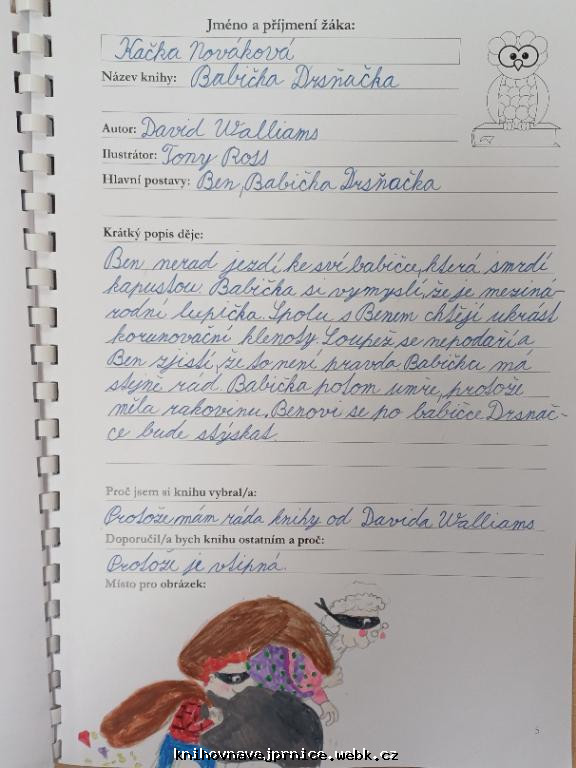 Jméno a příjmení žáka:
Kačka Nováková
Název knihy: Babička Drsňačka
Autor: David Walliams
Ilustrátor: Tony Ross
Hlavní postavy: Ben, Babička Drsňačka
Krátký popis děje:
Ben nerad jezdí ke své babičce, která smrdí
kapustou. Babička si vymyslí, že je meziná-
rodní lupička. Spolu s Benem chtějí ukrást
korunovační klenoty. Loupež se nepodaří a
Ben zjistí, že to není pravda. Babičku má
stejně rád. Babička potom umře, protože
měla rakovinu. Benovi se po babičce Drsnač-
ce bude stýskat.
Proč jsem si knihu vybral/a:
Protože mám ráda knihy od Davida Walliams
Doporučil/a bych knihu ostatním a proč:
Protože je vtipná.
Místo pro obrázek:
5
knihovnavejprnice.webk.cz